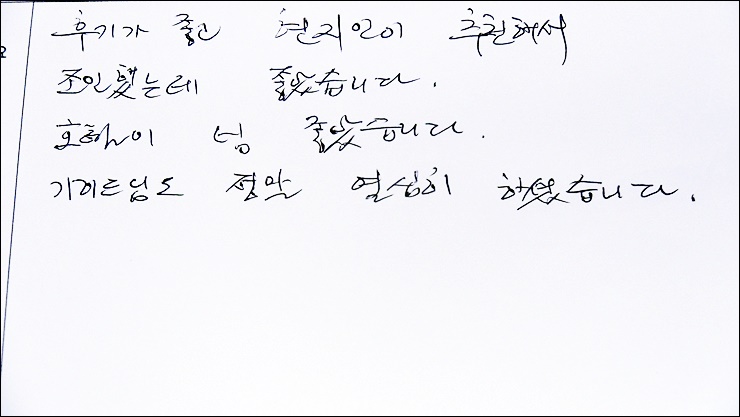 후기가 좋고 현지인이 추천해서
조인했는데 좋았습니다.
호핑이 넘 좋았습니다.
가이드님도 정말 열심히 하셨습니다.